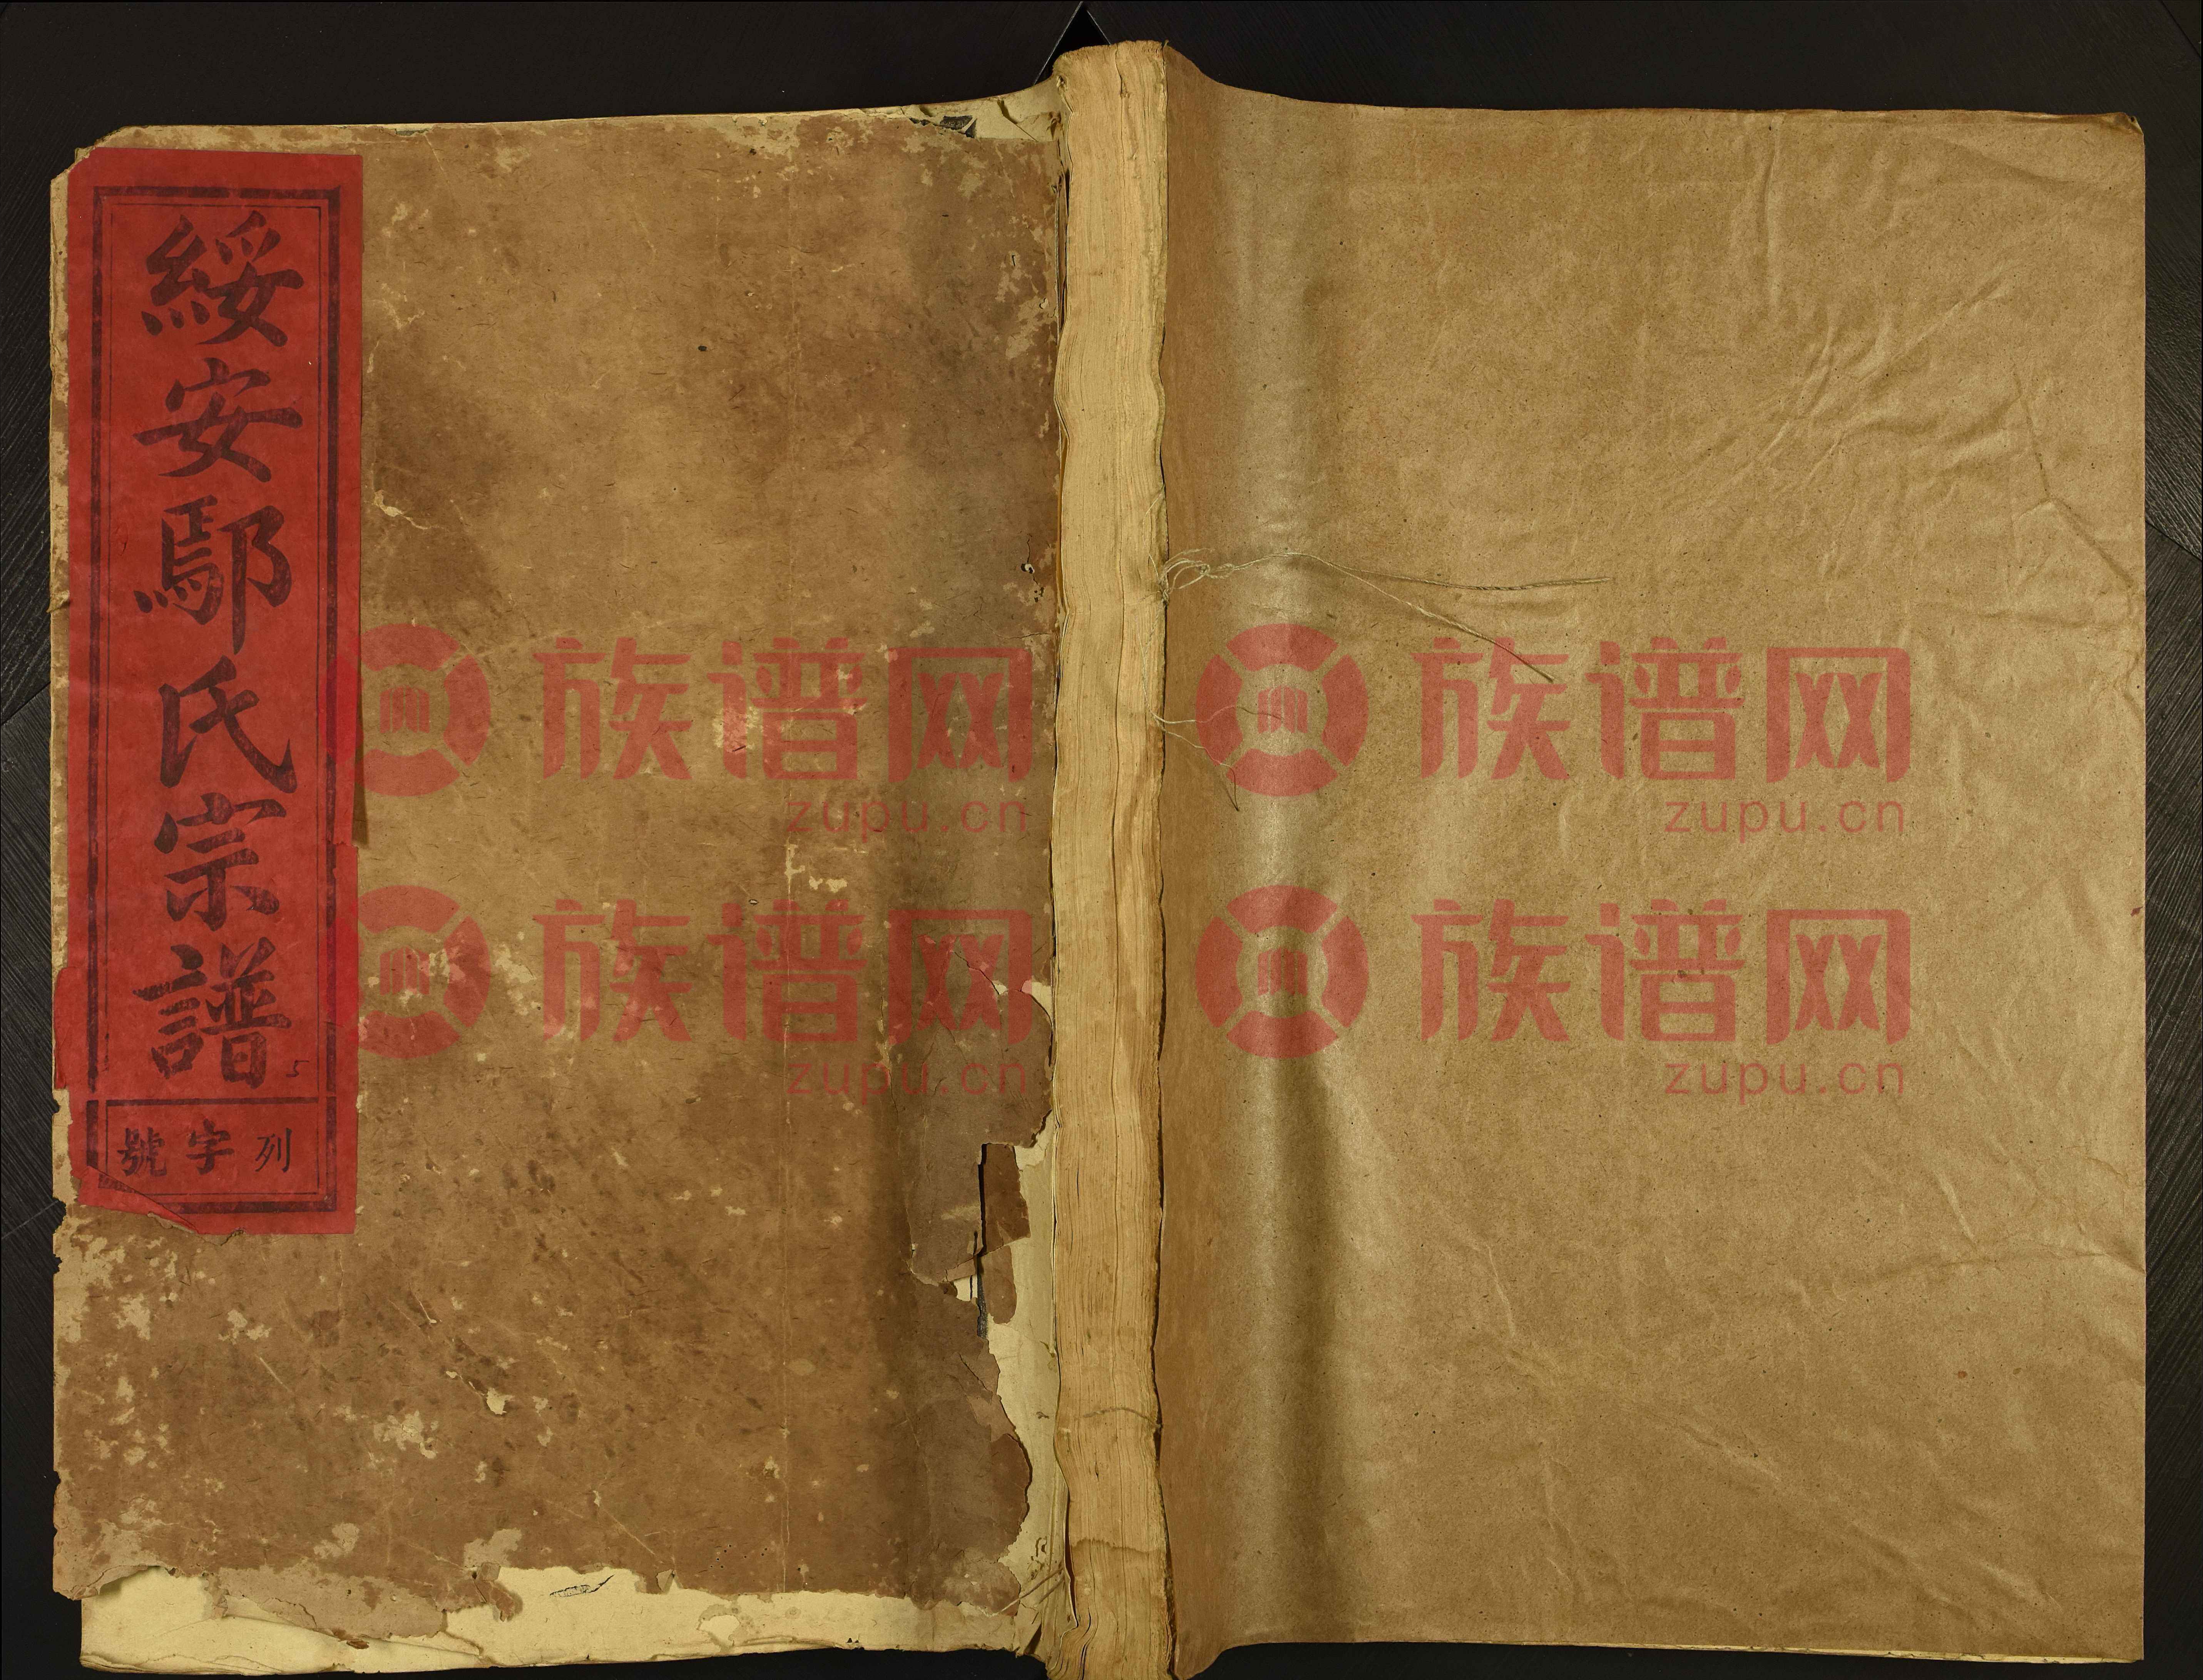 綏安鄢氏宗譜
5
列字號
族谱网
zupu.cn
族谱网
zupu.cn
族谱网
zupu.cn
族谱网
zupu.cn